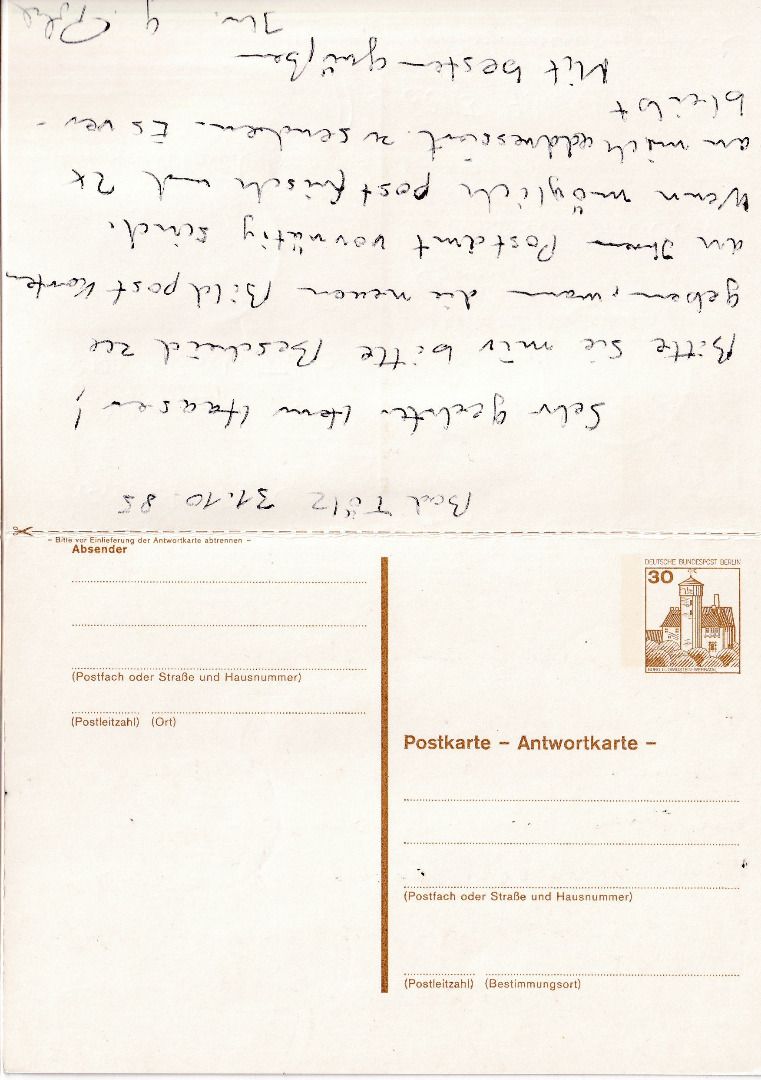 Bad Tölz 31.10.85
Sehr geehrter Herr Haaser!
Bitte Sie mir bitte Bescheid zu
geben, wann die neuen Bildpostkarten
an Ihrem Postamt vorrätig sind.
Wenn möglich postfrisch und 2x
an mich addressiert zu senden. Es ver-
bleibt
Mit besten Grüßen
Ihr G.
- Bitte vor Einlieferung der Antwortkarte abtrennen -
Absender
(Postfach oder Straße und Hausnummer)
(Postleitzahl) (Ort)
DEUTSCHE BUNDESPOST BERLIN
30
Postkarte – Antwortkarte –
(Postfach oder Straße und Hausnummer)
(Postleitzahl) (Bestimmungsort)